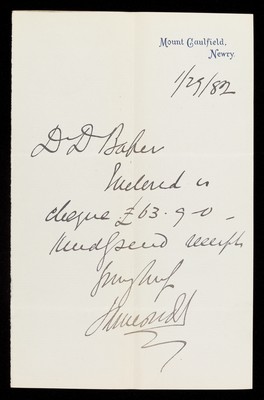 Mount Caulfield,
Newry.
1/29/82
Dr D Baker
Enclosed is
cheque £63.9-0 -
Kindly send receipt